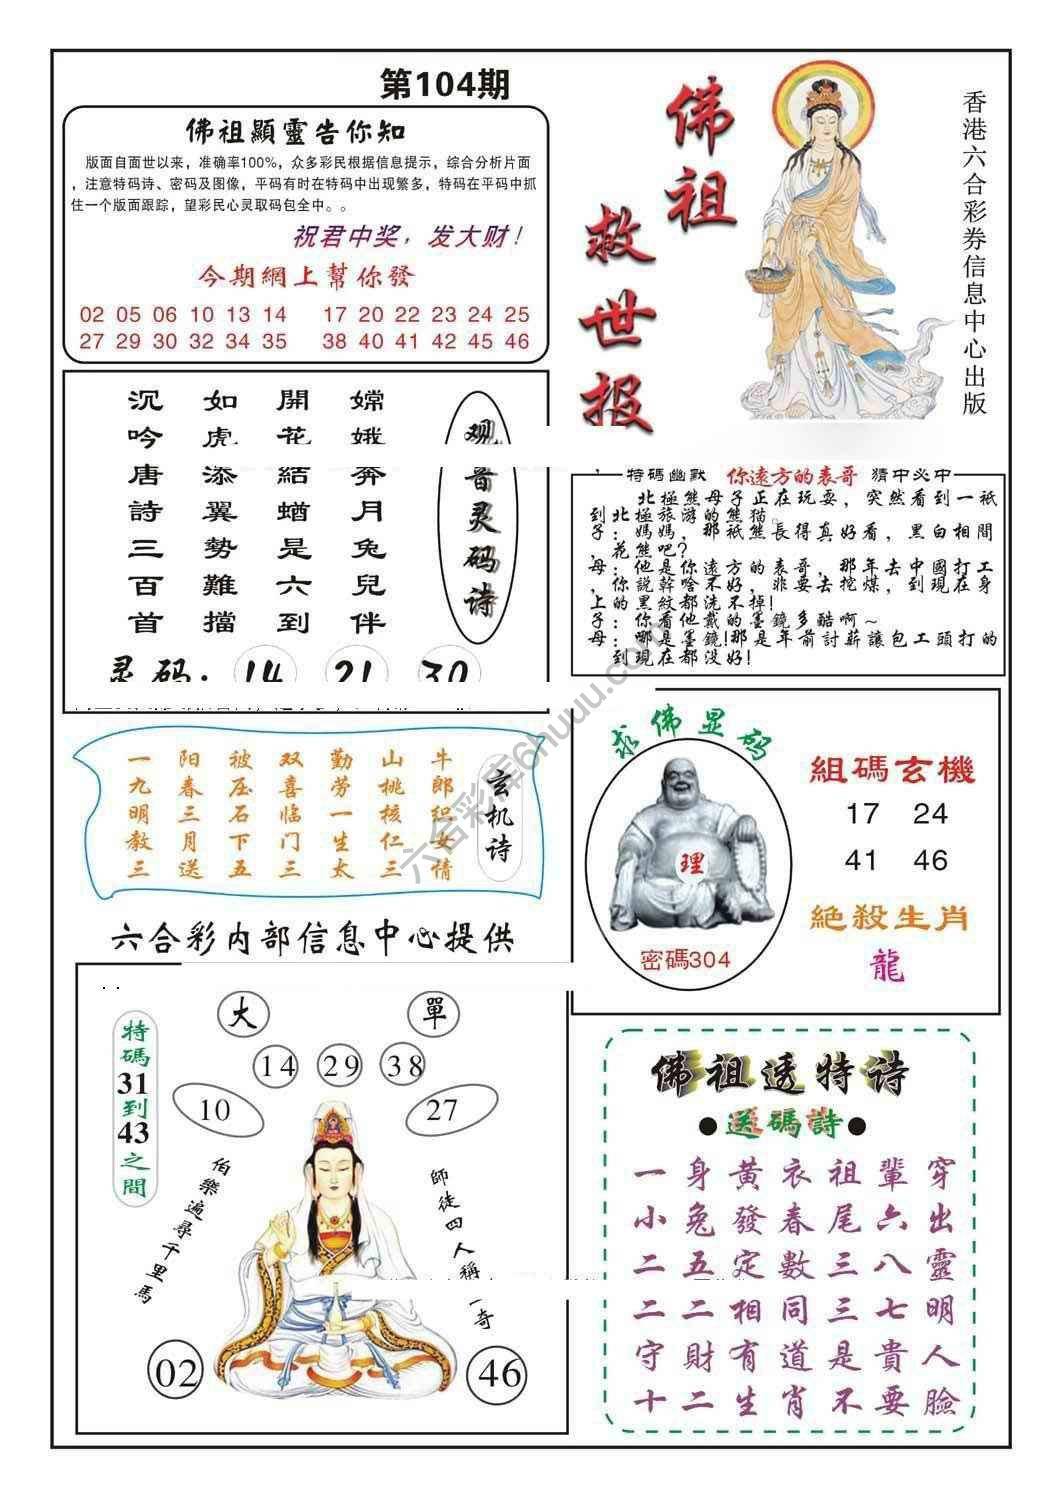 第104期
佛祖顯靈告你知
版面自面世以来，准确率100%，众多彩民根据信息提示，综合分析片面
，注意特码诗、密码及图像，平码有时在特码中出现繁多，特码在平码中抓
住一个版面跟踪，望彩民心灵取码包全中。。
祝君中奖，发大财！
今期網上幫你發
02 05 06 10 13 14 17 20 22 23 24 25
27 29 30 32 34 35 38 40 41 42 45 46
佛祖
救世报
香港六合彩券信息中心出版
观音灵码诗
嫦娥奔月兔兒伴
開花結蝤是六到
如虎添翼勢難擋
沉吟唐詩三百首
灵码：14 21 30
特碼幽默 你遠方的表哥 猜中必中
北極熊母子正在玩耍，突然看到一祇
到北極旅游的熊猫。
子：媽媽，那祇熊長得真好看，黑白相間
，花熊吧？
母：他是你遠方的表哥，那年去中國打工
，你說幹啥不好，非要去挖煤，到現在身
上的黑紋都洗不掉！
子：你看他戴的墨鏡多酷啊～
母：哪是墨鏡！那是年前討薪讓包工頭打的
到現在都没好！
玄机诗
牛郎织女情
山桃核仁三
勤劳一生太
双喜临门三
被压石下五
阳春三月送
一九明教三
求佛显码
理
密碼304
組碼玄機
17 24
41 46
絕殺生肖
龍
六合彩内部信息中心提供
大 單
特碼31到43之間
14 29 38
10 27
伯樂遍尋千里馬
師徒四人稱一奇
02 46
佛祖透特诗
●送碼詩●
一身黃衣祖輩穿
小兔發春尾六出
二五定數三八靈
二二相同三七明
守財有道是貴人
十二生肖不要臉
六合彩库6huuu.com